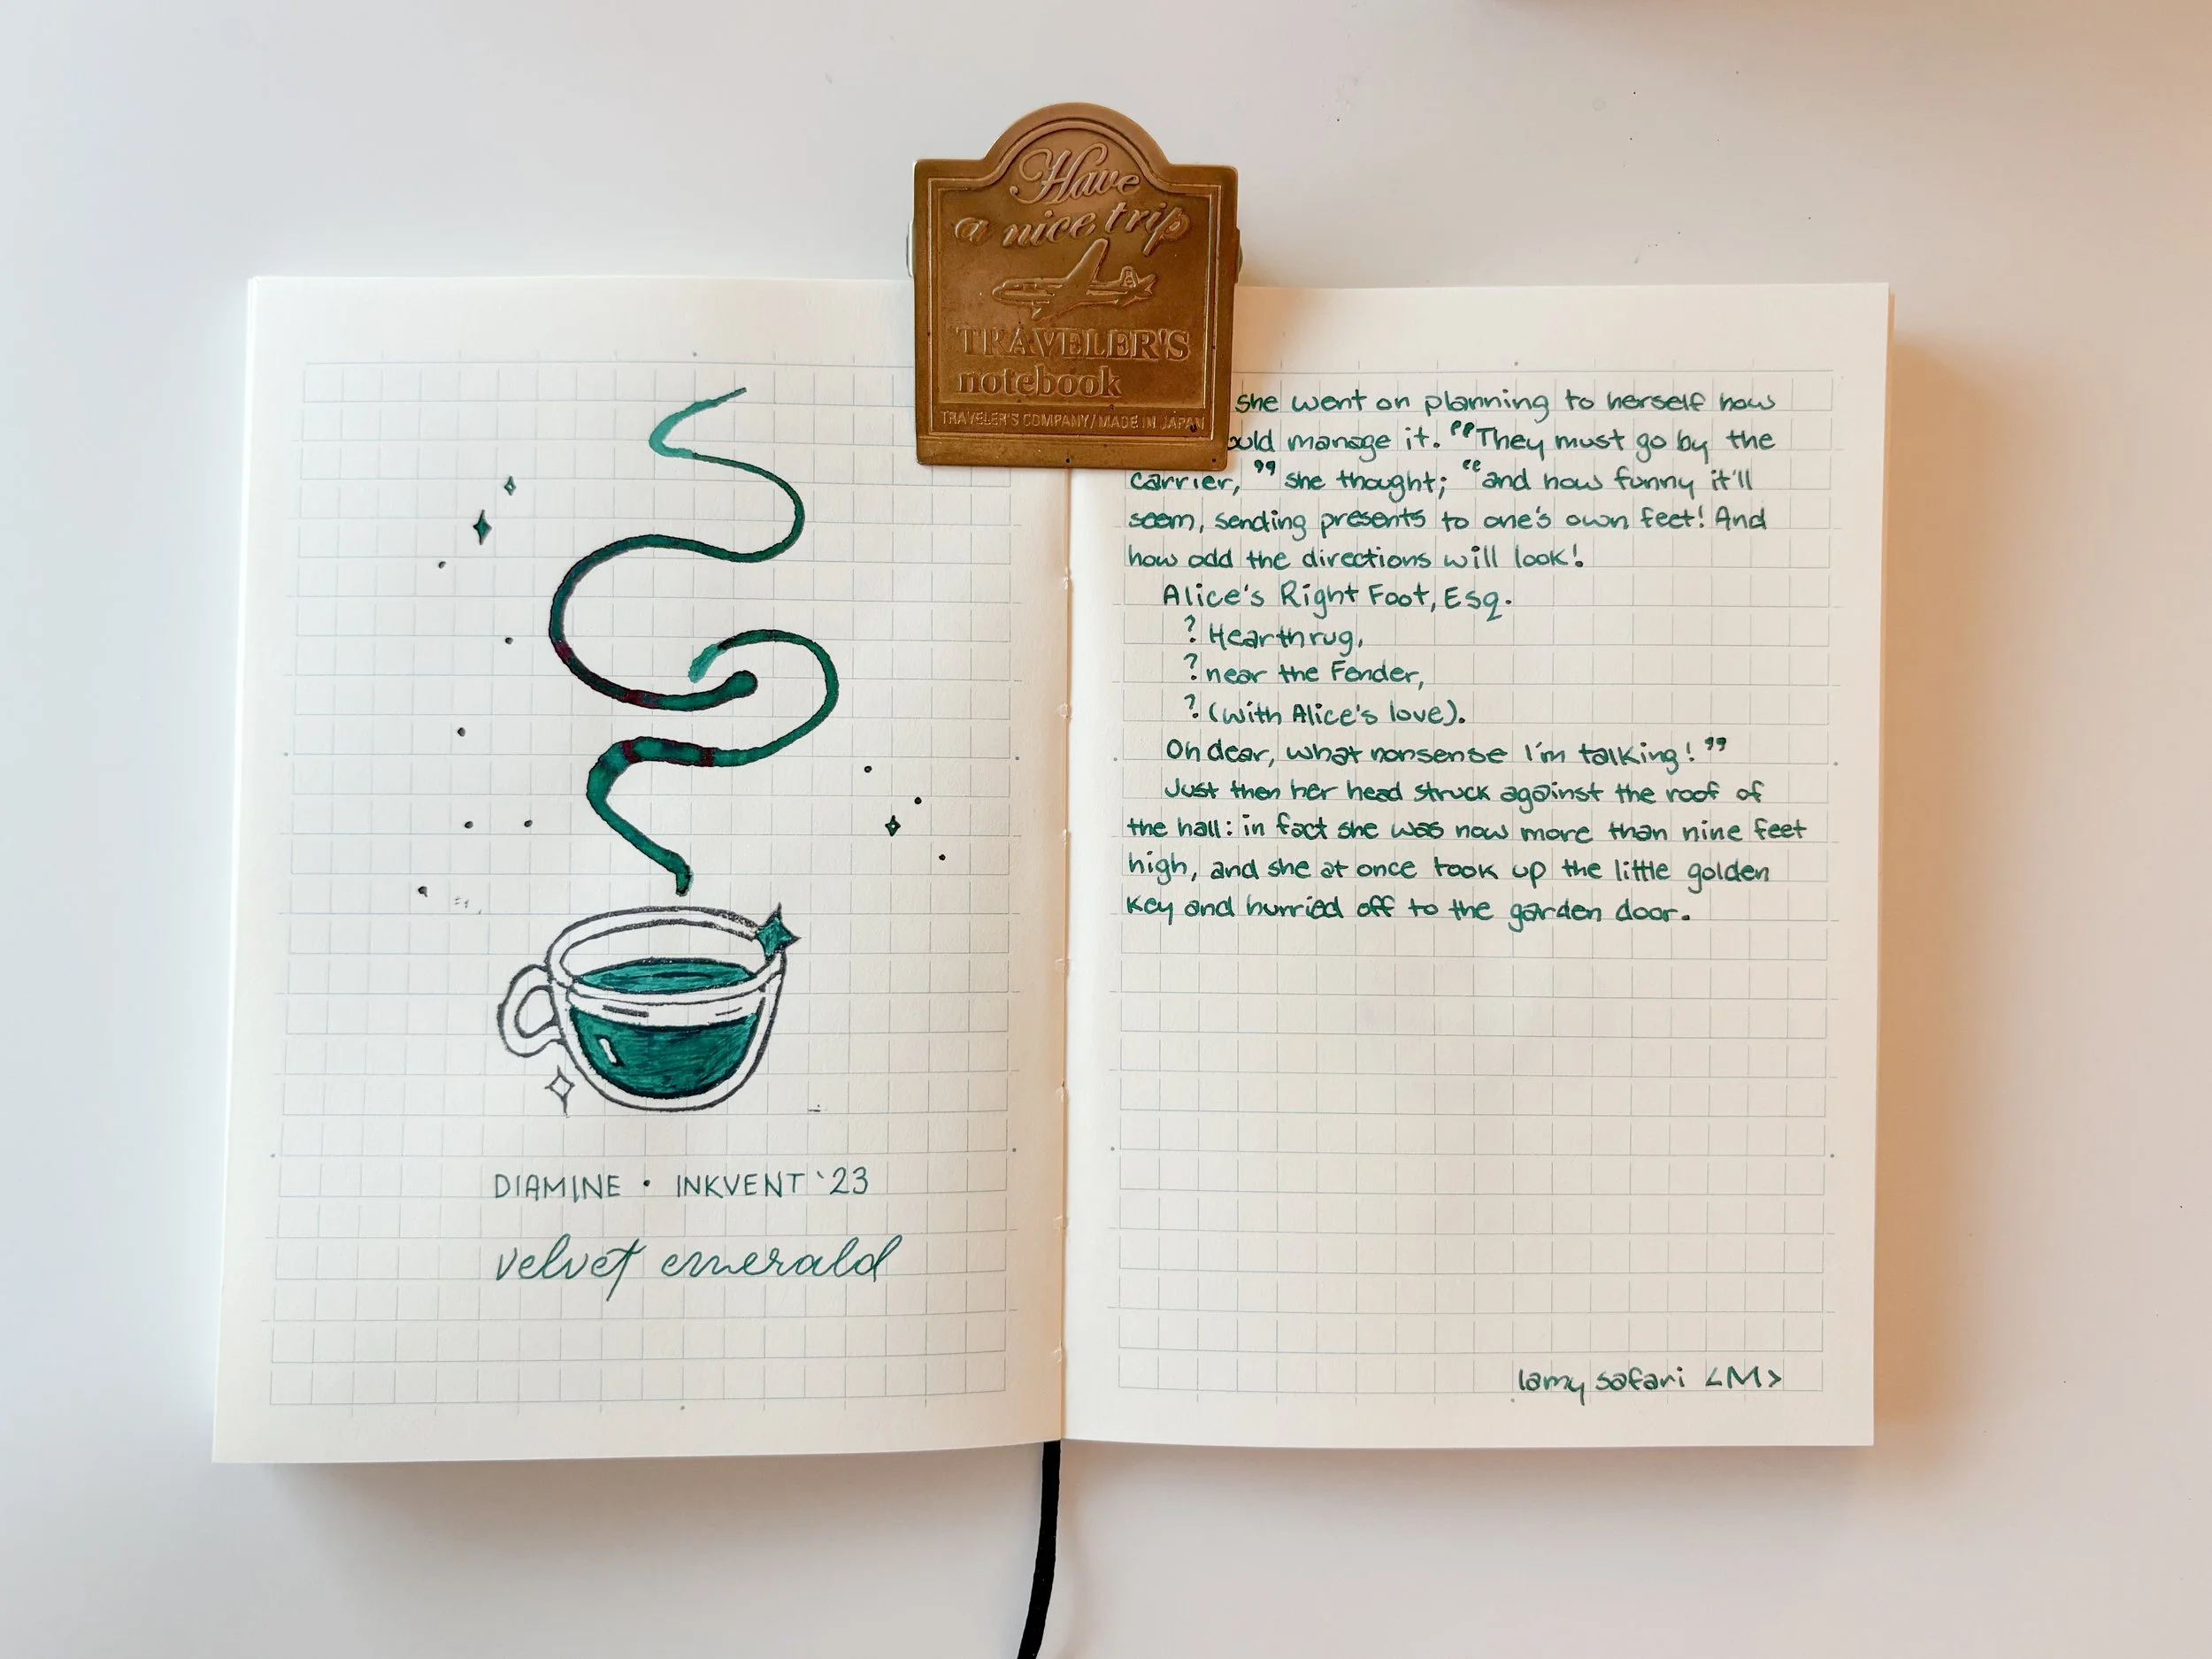 Have
a nice trip
TRAVELER'S
notebook
TRAVELER'S COMPANY/MADE IN JAPAN
DIAMINE • INKVENT '23
velvet emerald
she went on planning to herself how
manage it. "They must go by the
carrier," she thought; "and how funny it'll
seem, sending presents to one's own feet! And
how odd the directions will look!
Alice's Right Foot, Esq.
? Hearthrug,
? near the Fender,
? (with Alice's love).
Oh dear, what nonsense I'm talking!"
Just then her head struck against the roof of
the hall: in fact she was now more than nine feet
high, and she at once took up the little golden
key and hurried off to the garden door.
lamy safari <M>